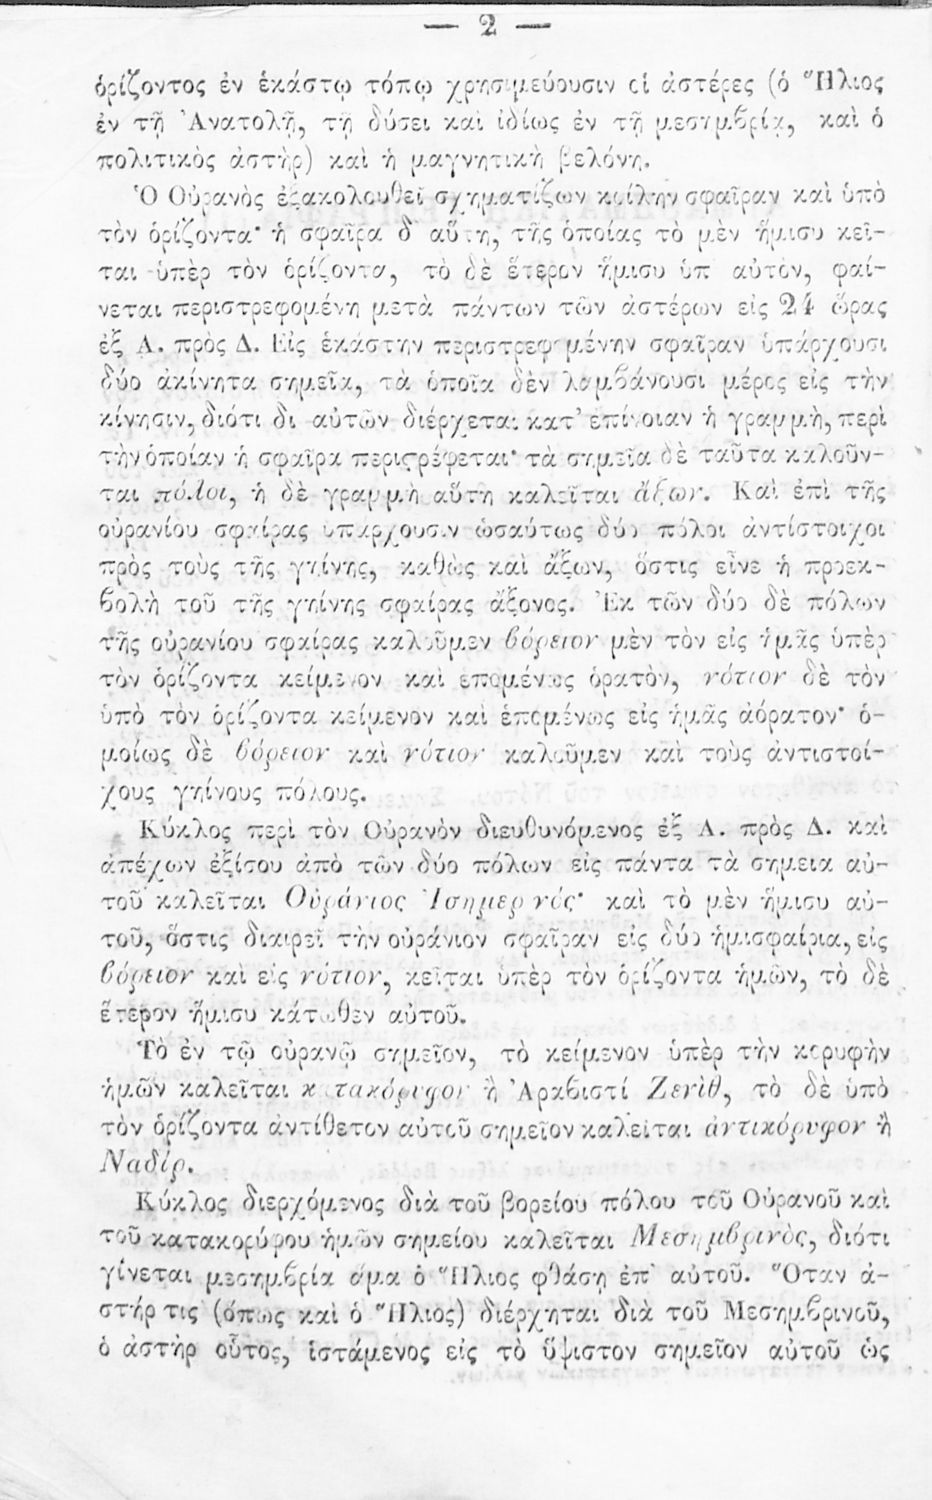 — 2 —
ὁρίζοντος ἐν ἑκάστῳ τόπῳ χρησιμεύουσιν οἱ ἀστέρες (ὁ Ἥλιος
ἐν τῇ Ἀνατολῇ, τῇ δύσει καὶ ἰδίως ἐν τῇ μεσημβρίᾳ, καὶ ὁ
πολιτικὸς ἀστὴρ) καὶ ἡ μαγνητικὴ βελόνη.
Ὁ Οὐρανὸς ἐξακολουθεῖ σχηματίζων κοίλην σφαῖραν καὶ ὑπὸ
τὸν ὁρίζοντα· ἡ σφαῖρα δ' αὕτη, τῆς ὁποίας τὸ μὲν ἥμισυ κεῖ-
ται ὑπὲρ τὸν ὁρίζοντα, τὸ δὲ ἕτερον ἥμισυ ὑπ' αὐτὸν, φαί-
νεται περιστρεφομένη μετὰ πάντων τῶν ἀστέρων εἰς 24 ὥρας
ἐξ Α. πρὸς Δ. Εἰς ἑκάστην περιστρεφομένην σφαῖραν ὑπάρχουσι
δύο ἀκίνητα σημεῖα, τὰ ὁποῖα δὲν λαμβάνουσι μέρος εἰς τὴν
κίνησιν, διότι δι' αὐτῶν διέρχεται κατ' ἐπίνοιαν ἡ γραμμὴ, περὶ
τὴν ὁποίαν ἡ σφαῖρα περιστρέφεται· τὰ σημεῖα δὲ ταῦτα καλοῦν-
ται πόλοι, ἡ δὲ γραμμὴ αὕτη καλεῖται ἄξων. Καὶ ἐπὶ τῆς
οὐρανίου σφαίρας ὑπάρχουσιν ὡσαύτως δύο πόλοι ἀντίστοιχοι
πρὸς τοὺς τῆς γηίνης, καθὼς καὶ ἄξων, ὅστις εἶνε ἡ προεκ-
βολὴ τοῦ τῆς γηίνης σφαίρας ἄξονος. Ἐκ τῶν δύο δὲ πόλων
τῆς οὐρανίου σφαίρας καλοῦμεν βόρειον μὲν τὸν εἰς ἡμᾶς ὑπὲρ
τὸν ὁρίζοντα κείμενον καὶ ἑπομένως ὁρατὸν, νότιον δὲ τὸν
ὑπὸ τὸν ὁρίζοντα κείμενον καὶ ἑπομένως εἰς ἡμᾶς ἀόρατον· ὁ-
μοίως δὲ βόρειον καὶ νότιον καλοῦμεν καὶ τοὺς ἀντιστοί-
χους γηίνους πόλους.
Κύκλος περὶ τὸν Οὐρανὸν διευθυνόμενος ἐξ Α. πρὸς Δ. καὶ
ἀπέχων ἐξίσου ἀπὸ τῶν δύο πόλων εἰς πάντα τὰ σημεῖα αὐ-
τοῦ καλεῖται Οὐράνιος Ἰσημερινός· καὶ τὸ μὲν ἥμισυ αὐ-
τοῦ, ὅστις διαιρεῖ τὴν οὐράνιον σφαῖραν εἰς δύο ἡμισφαίρια, εἰς
βόρειον καὶ εἰς νότιον, κεῖται ὑπὲρ τὸν ὁρίζοντα ἡμῶν, τὸ δὲ
ἕτερον ἥμισυ κάτωθεν αὐτοῦ.
Τὸ ἐν τῷ οὐρανῷ σημεῖον, τὸ κείμενον ὑπὲρ τὴν κορυφὴν
ἡμῶν καλεῖται κατακόρυφον ἢ Ἀραβιστί Ζενὶθ, τὸ δὲ ὑπὸ
τὸν ὁρίζοντα ἀντίθετον αὐτοῦ σημεῖον καλεῖται ἀντικόρυφον ἢ
Ναδίρ.
Κύκλος διερχόμενος διὰ τοῦ βορείου πόλου τοῦ Οὐρανοῦ καὶ
τοῦ κατακορύφου ἡμῶν σημείου καλεῖται Μεσημβρινὸς, διότι
γίνεται μεσημβρία ἅμα ὁ Ἥλιος φθάσῃ ἐπ' αὐτοῦ. Ὅταν ἀ-
στήρ τις (ὅπως καὶ ὁ Ἥλιος) διέρχηται διὰ τοῦ Μεσημβρινοῦ,
ὁ ἀστὴρ οὗτος, ἱστάμενος εἰς τὸ ὕψιστον σημεῖον αὐτοῦ ὡς